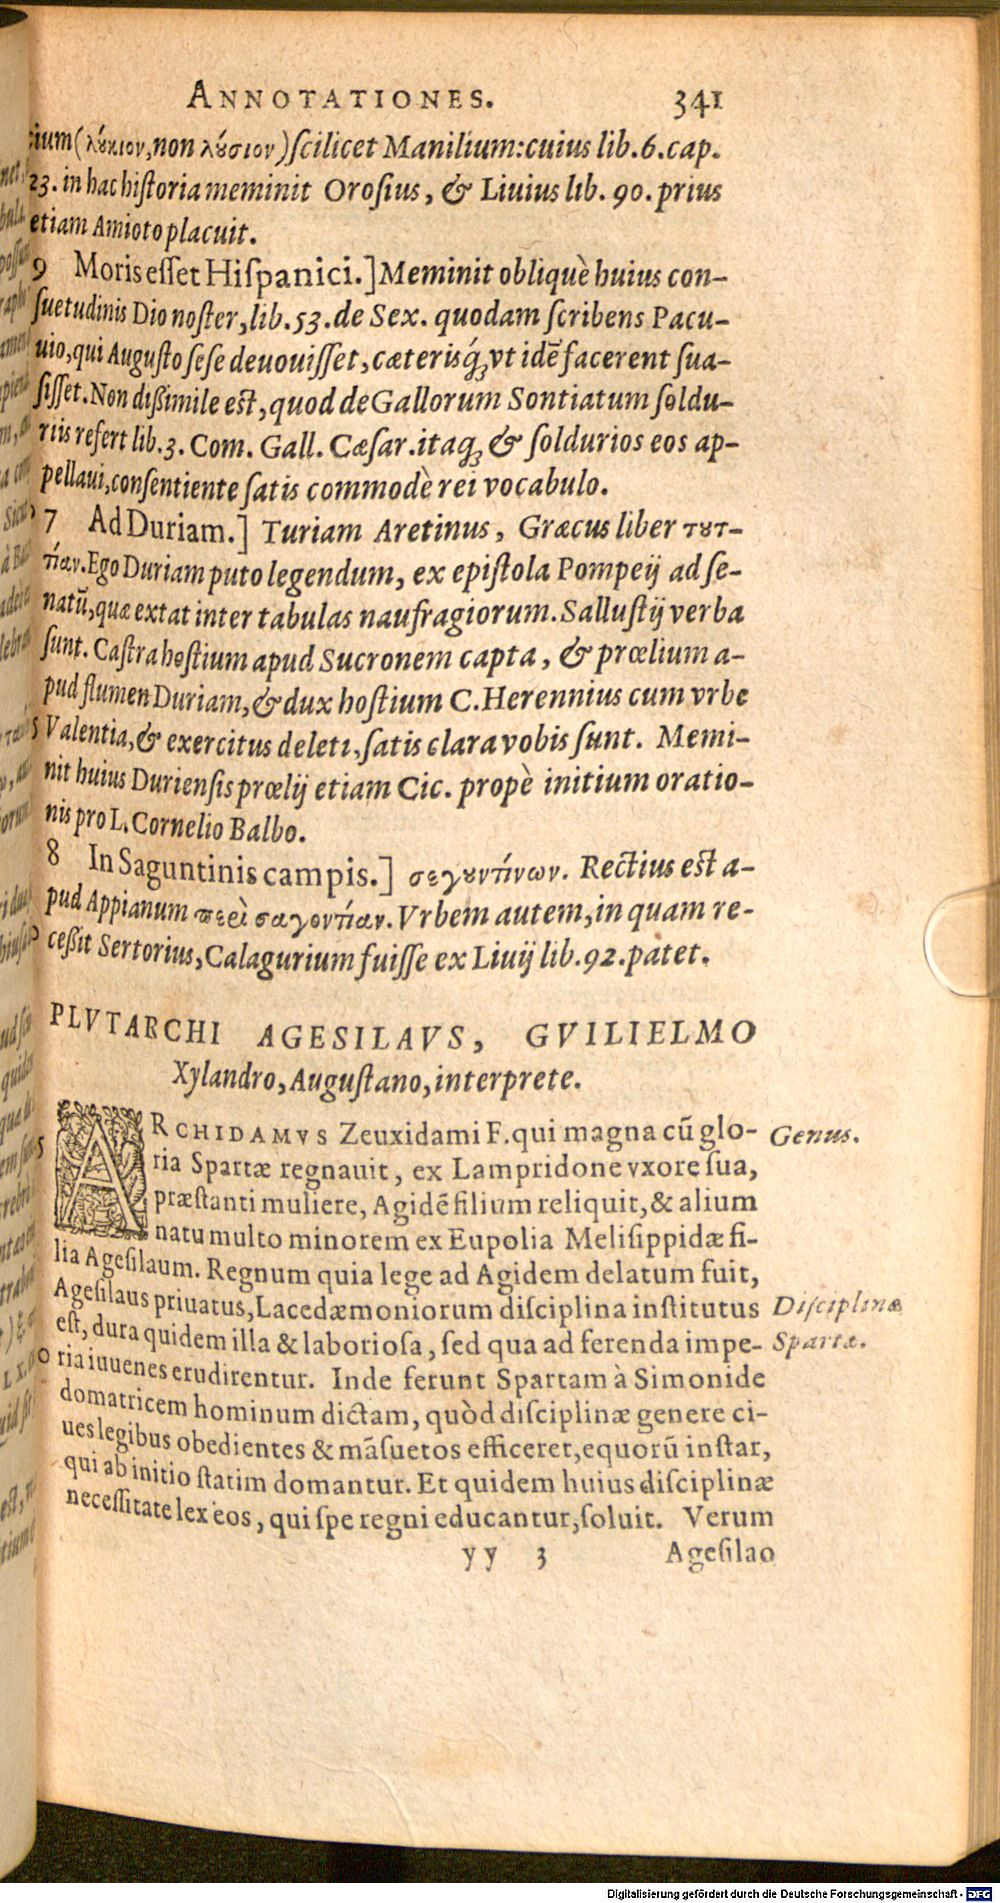 ANNOTATIONES. 341
cium (λύκιον, non λύσιον) ſcilicet Manilium: cuius lib. 6. cap.
23. in hac hiſtoria meminit Oroſius, & Liuius lib. 90. prius
etiam Amioto placuit.
9 Moris eſſet Hiſpanici.] Meminit obliquè huius con-
ſuetudinis Dio noſter, lib. 53. de Sex. quodam ſcribens Pacu-
uio, qui Auguſto ſeſe deuouiſſet, cæterisq́ꝫ vt idẽ facerent ſua-
ſiſſet. Non dißimile eſt, quod de Gallorum Sontiatum ſoldu-
riis refert lib. 3. Com. Gall. Cæſar. itaqꝫ & ſoldurios eos ap-
pellaui, conſentiente ſatis commodè rei vocabulo.
7 Ad Duriam.] Turiam Aretinus, Græcus liber τουτ-
τίαν. Ego Duriam puto legendum, ex epiſtola Pompeij ad ſe-
natũ, quæ extat inter tabulas naufragiorum. Salluſtij verba
ſunt. Caſtra hoſtium apud Sucronem capta, & prœlium a-
pud flumen Duriam, & dux hoſtium C. Herennius cum vrbe
Valentia, & exercitus deleti, ſatis clara vobis ſunt. Memi-
nit huius Durienſis prœlij etiam Cic. propè initium oratio-
nis pro L. Cornelio Balbo.
8 In Saguntinis campis.] σεγουντίνων. Rectius eſt a-
pud Appianum περὶ σαγουντίαν. Vrbem autem, in quam re-
ceßit Sertorius, Calagurium fuiſſe ex Liuij lib. 92. patet.
PLVTARCHI AGESILAVS, GVILIELMO
Xylandro, Auguſtano, interprete.
ARCHIDAMVS Zeuxidami F. qui magna cũ glo-
Genus.
ria Spartæ regnauit, ex Lampridone vxore ſua,
præſtanti muliere, Agidẽ filium reliquit, & alium
natu multo minorem ex Eupolia Meliſippidæ fi-
lia Ageſilaum. Regnum quia lege ad Agidem delatum fuit,
Ageſilaus priuatus, Lacedæmoniorum diſciplina inſtitutus
Diſciplina
eſt, dura quidem illa & laborioſa, ſed qua ad ferenda impe-
Spartæ.
ria iuuenes erudirentur. Inde ferunt Spartam à Simonide
domatricem hominum dictam, quòd diſciplinæ genere ci-
ues legibus obedientes & mãſuetos efficeret, equorũ inſtar,
qui ab initio ſtatim domantur. Et quidem huius diſciplinæ
neceſſitate lex eos, qui ſpe regni educantur, ſoluit. Verum
yy 3 Ageſilao
Digitalisierung gefördert durch die Deutsche Forschungsgemeinschaft - DFG